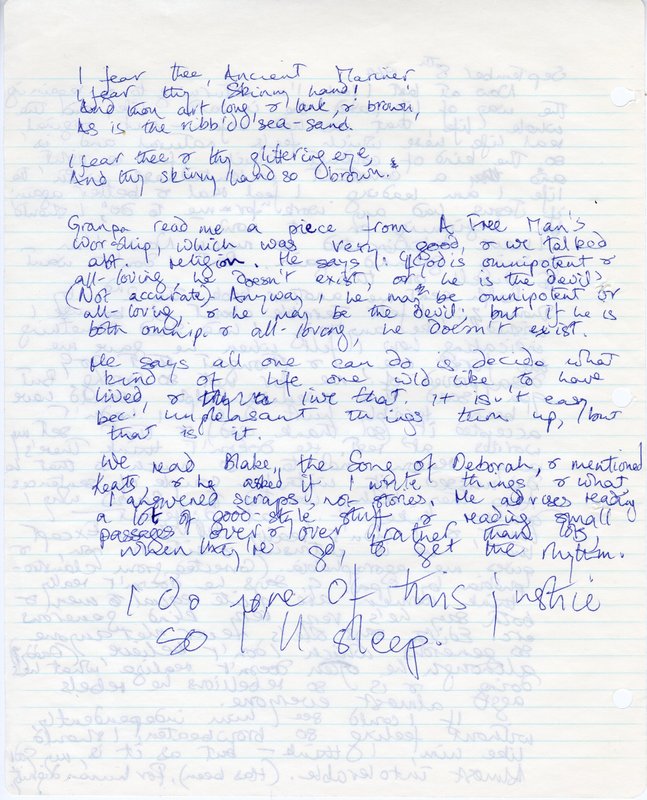 I fear thee, Ancient Mariner
I fear thy Skinny hand!
And thou art long & lank, & brown,
As is the ribb'd sea-sand.
I fear thee & thy glittering eye,
And thy skinny hand so brown.
Granpa read me a piece from A Free Man's
Worship, which was very good, & we talked
abt. religion. He says if God is omnipotent &
all-loving, he doesn't exist, or he is the devil
(Not accurate) Anyway, he may be omnipotent or
all-loving, & he may be the devil; but if he is
both omnip. & all-loving, he doesn't exist.
He says all one can do is decide what
kind of life one wld like to have
lived, & live that. It isn't easy
bec. unpleasant things turn up, but
that is it.
We read Blake, the Song of Deborah, & mentioned
Keats, & he asked if I write things & what
I answered scraps, not stories. He advises reading
a lot of good-style stuff & reading small
passages over & over rather than lots,
when they're go, to get the rhythm.
I do none of this justice
so I'll sleep.